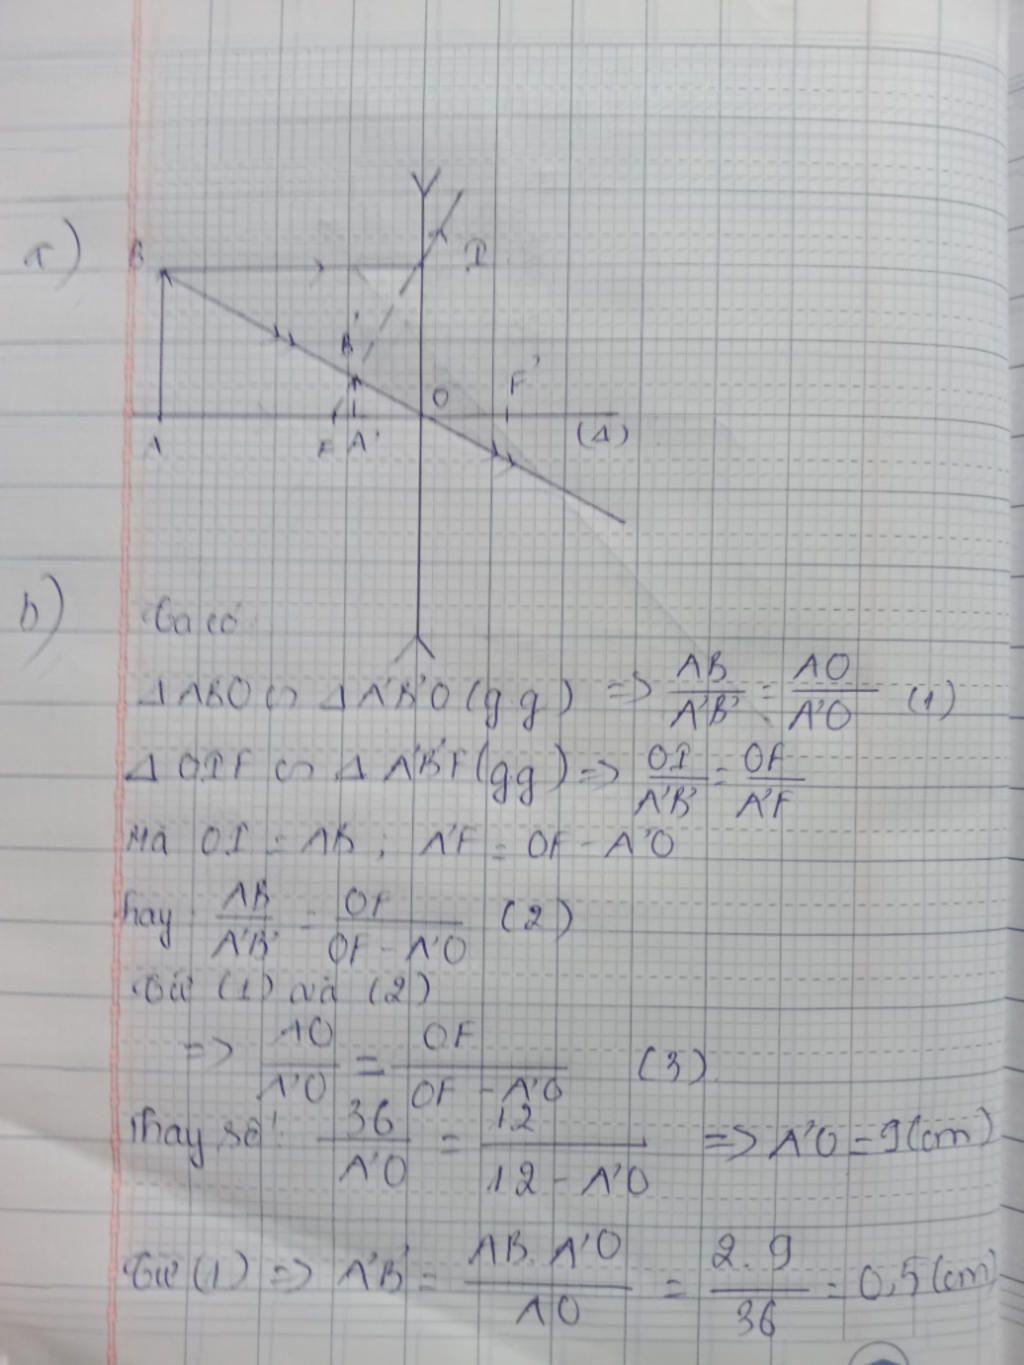 a)
B
I
B'
O
F'
A
F
A'
(Δ)
b)
Ta có
Δ ABO ∽ Δ A'B'O (g.g) => AB/A'B' = AO/A'O (1)
Δ OIF ∽ Δ A'B'F (g.g) => OI/A'B' = OF/A'F
Mà OI = AB ; A'F = OF - A'O
hay AB/A'B' = OF/(OF - A'O) (2)
Từ (1) và (2)
=> AO/A'O = OF/(OF - A'O) (3)
Thay số: 36/A'O = 12/(12 - A'O) => A'O = 9 (cm)
Từ (1) => A'B' = AB.A'O/AO = 2.9/36 = 0,5 (cm)